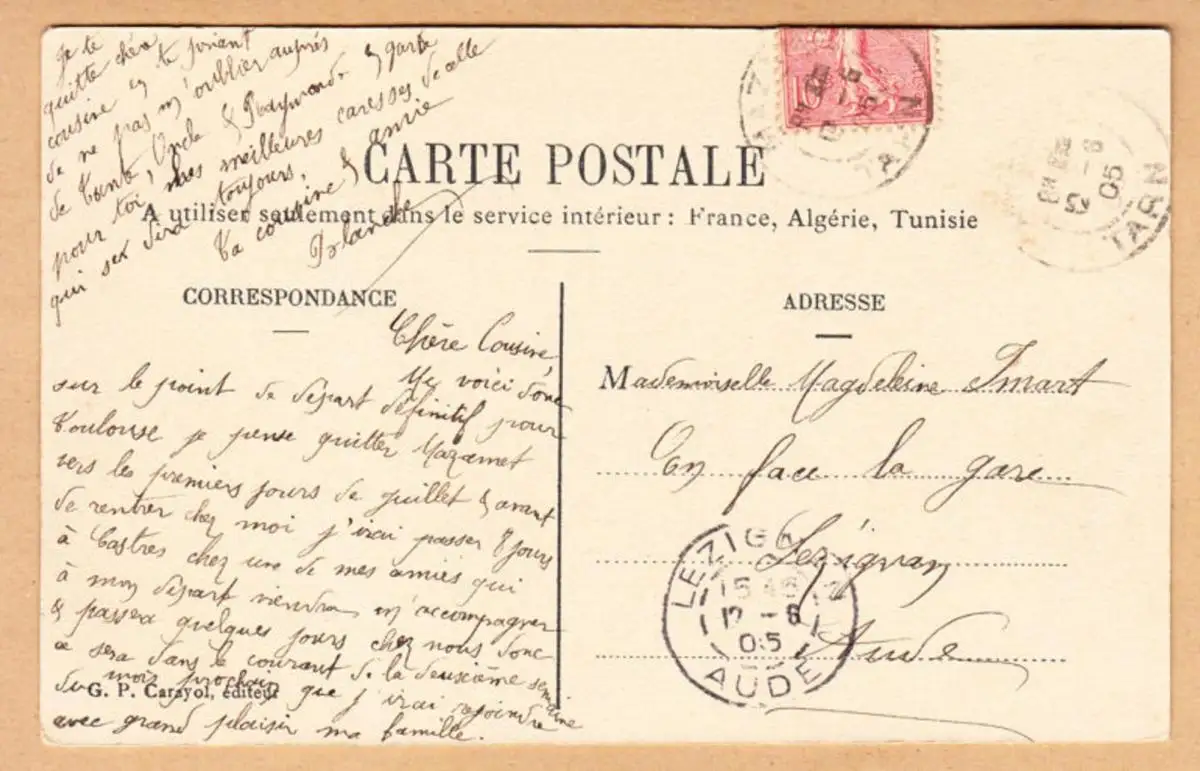 je te
quitte chère
cousine en te priant
de ne pas m'oublier auprès
de Tante, Oncle & Raymonde & garde
pour toi, mes meilleures caresses de celle
qui sex dira toujours,
ta cousine & amie
Blanche
CARTE POSTALE
A utiliser seulement dans le service intérieur : France, Algérie, Tunisie
CORRESPONDANCE
Chère Cousine,
Me voici donc
sur le point de départ définitif pour
Toulouse je pense quitter Mazamet
vers les premiers jours de Juillet & avant
de rentrer chez moi j'irai passer 8 jours
à Castres chez une de mes amies qui
à mon départ viendra m'accompagner
& passer quelques jours chez nous donc
ce sera dans le courant de la deuxième semaine
du mois prochain que j'irai rejoindre
avec grand plaisir ma famille.
G. P. Carayol, éditeur
10
TARN
05
TARN
ADRESSE
Mademoiselle Magdeleine Imart
En face la gare
Lézignan
Aude
LEZIGN
12 -6
05
AUDE